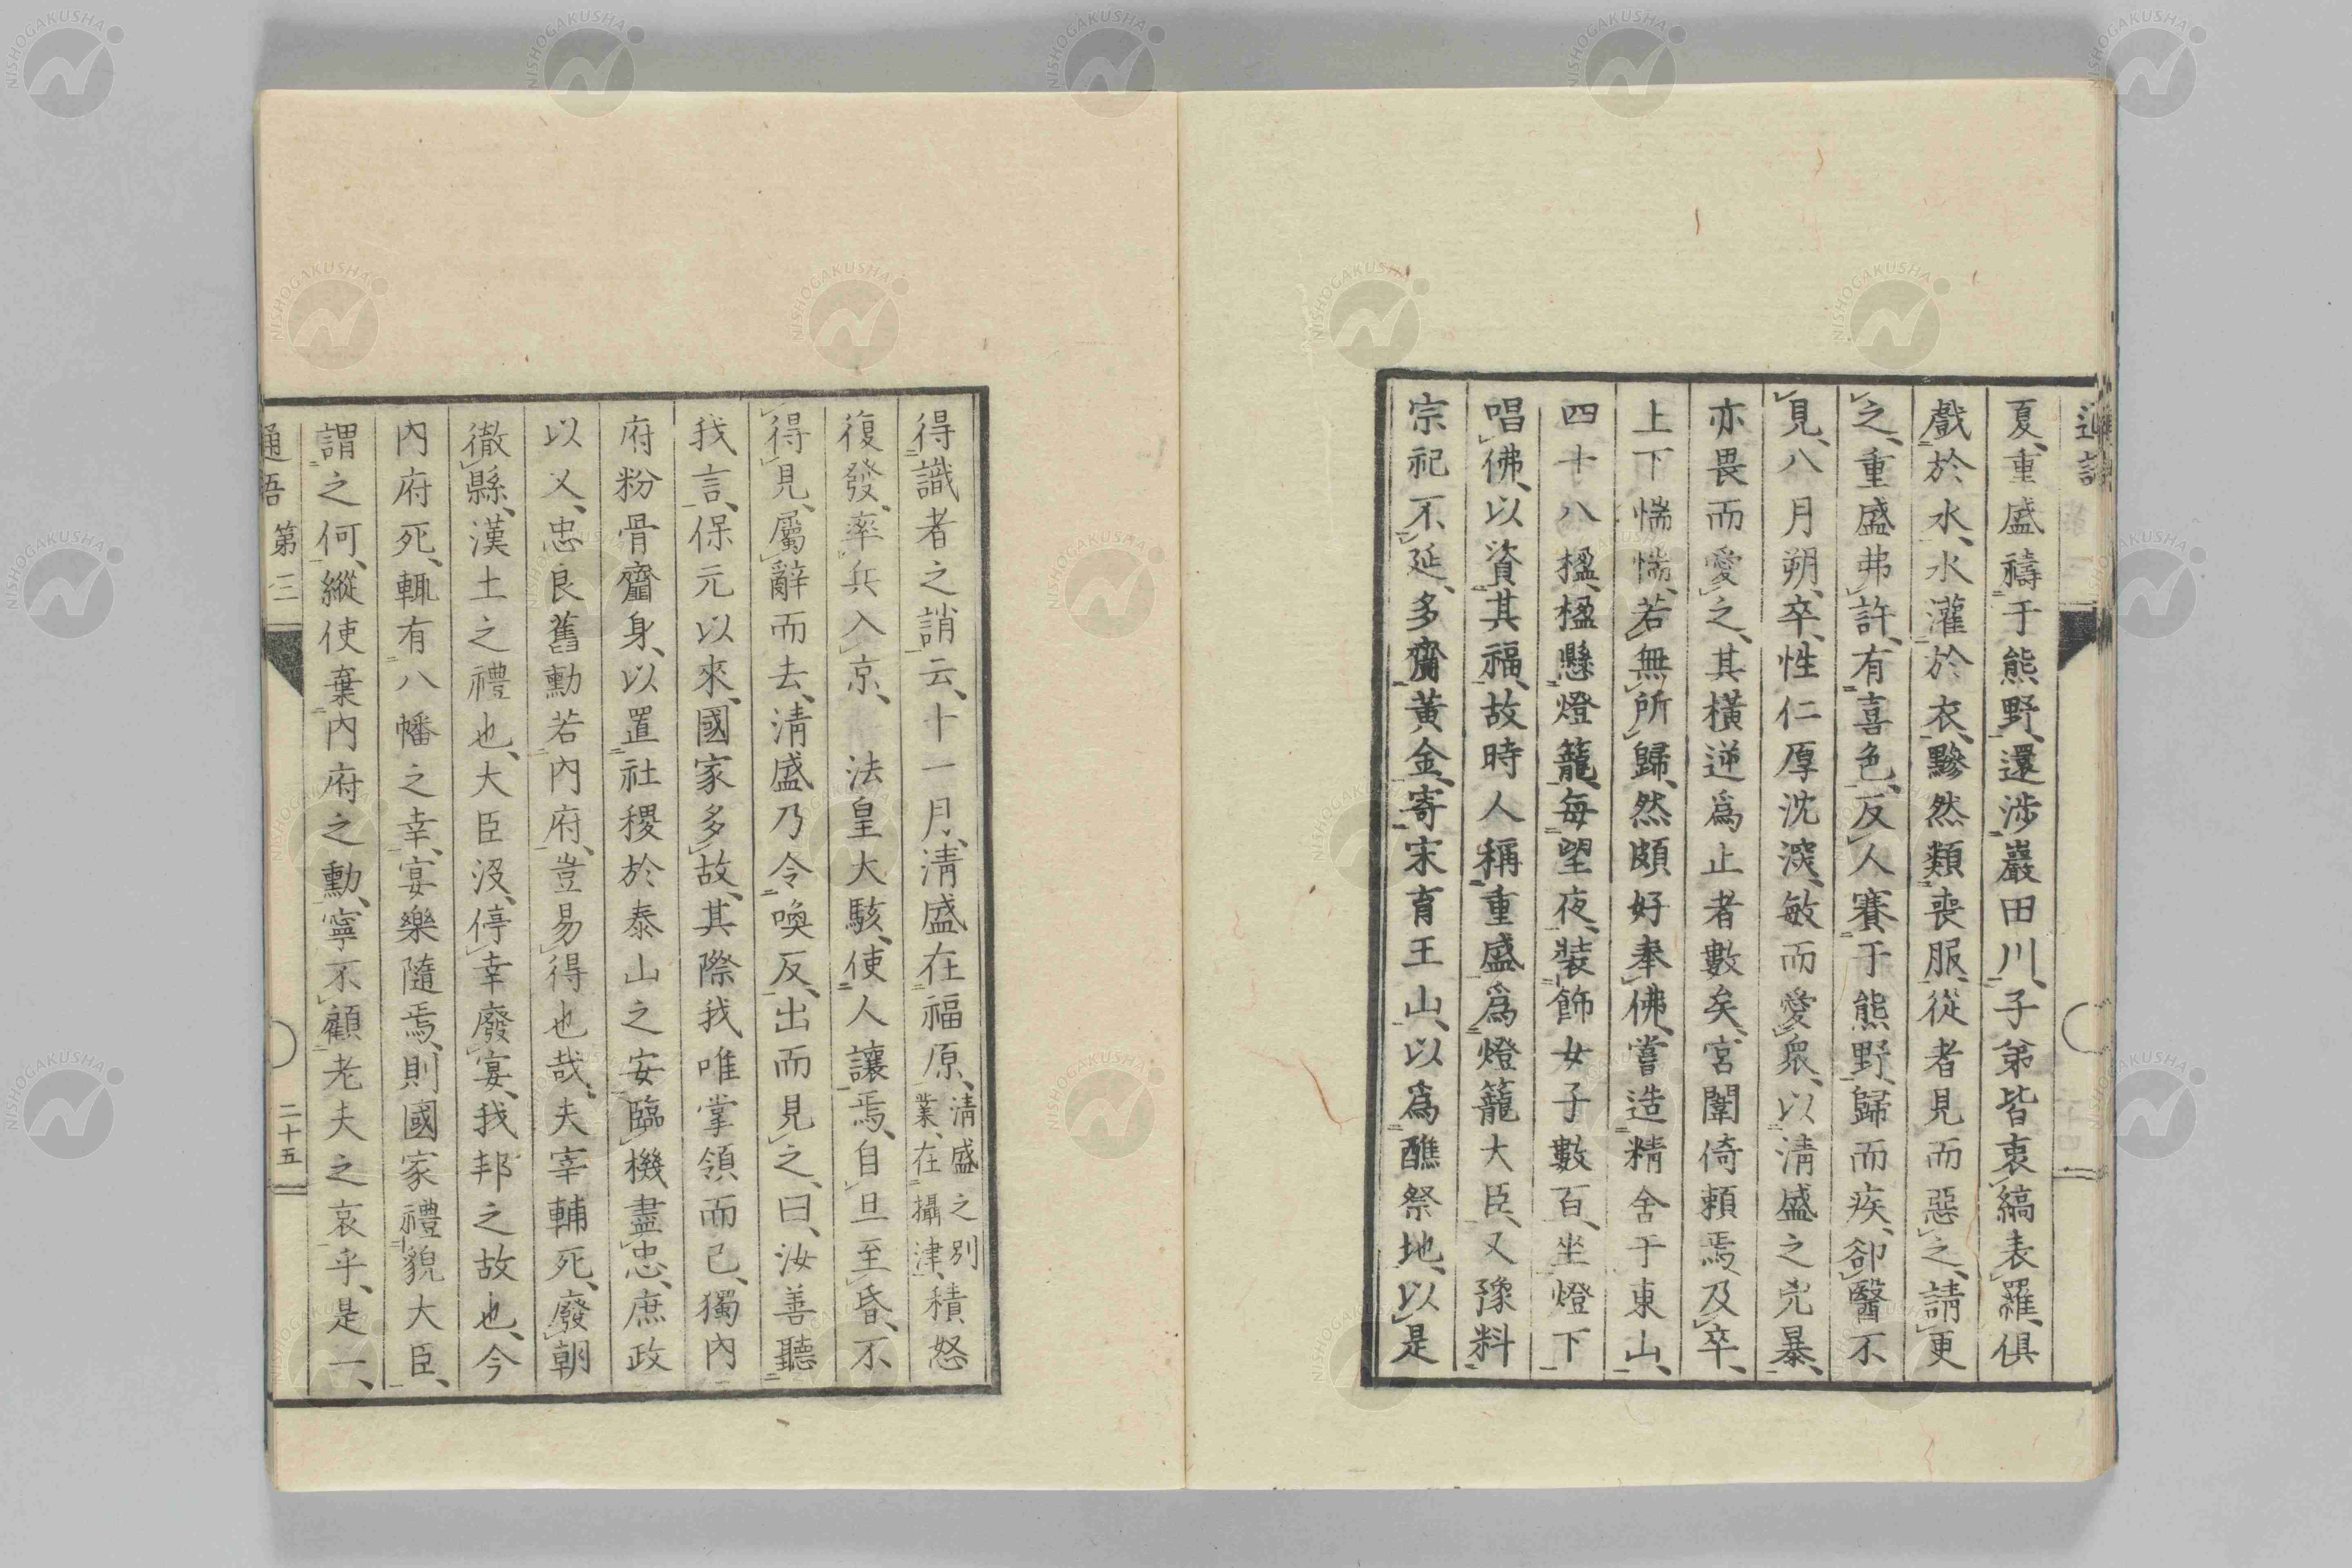 夏、重盛禱于熊野、還涉巖田川、子弟皆衷縞表羅、俱
戲於水、水灌於衣、黲然類喪服、從者見而惡之、請更
之、重盛弗許、有喜色、反人賽于熊野、歸而疾、卻醫不
見、八月朔、卒、性仁厚沈深、敏而愛衆、以淸盛之兇暴、
亦畏而愛之、其橫逆爲止者數矣、宮闈倚賴焉、及卒、
上下惴惴、若無所歸、然頗好奉佛、嘗造精舍于東山、
四十八楹、楹懸燈籠、每望夜、裝飾女子數百、坐燈下
唱佛、以資其福、故時人稱重盛爲燈籠大臣、又豫料
宗祀不延、多齎黃金、寄宋育王山、以爲醮祭地、以是
得識者之誚云、十一月、淸盛在福原、淸盛之別業、在攝津、積怒
復發、率兵入京、法皇大駭、使人讓焉、自旦至昏、不
得見、屬辭而去、淸盛乃令喚反、出而見之、曰、汝善聽
我言、保元以來、國家多故、其際我唯掌領而已、獨內
府粉骨齏身、以置社稷於泰山之安、臨機盡忠、庶政
以乂、忠良舊勳若內府、豈易得也哉、夫宰輔死、廢朝
徹縣、漢土之禮也、大臣沒、停幸廢宴、我邦之故也、今
內府死、輒有八幡之幸、宴樂隨焉、則國家禮貌大臣、
謂之何、縱使棄內府之勳、寧不顧老夫之哀乎、是一、
通語 第三 二十五